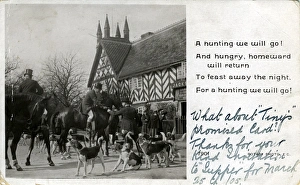 A hunting we will go!
And hungry, homeward
will return
To feast away the night.
For a hunting we will go!
What about Tiny's
promised Card!!
Thanks for your
kind
to Supper for March
25